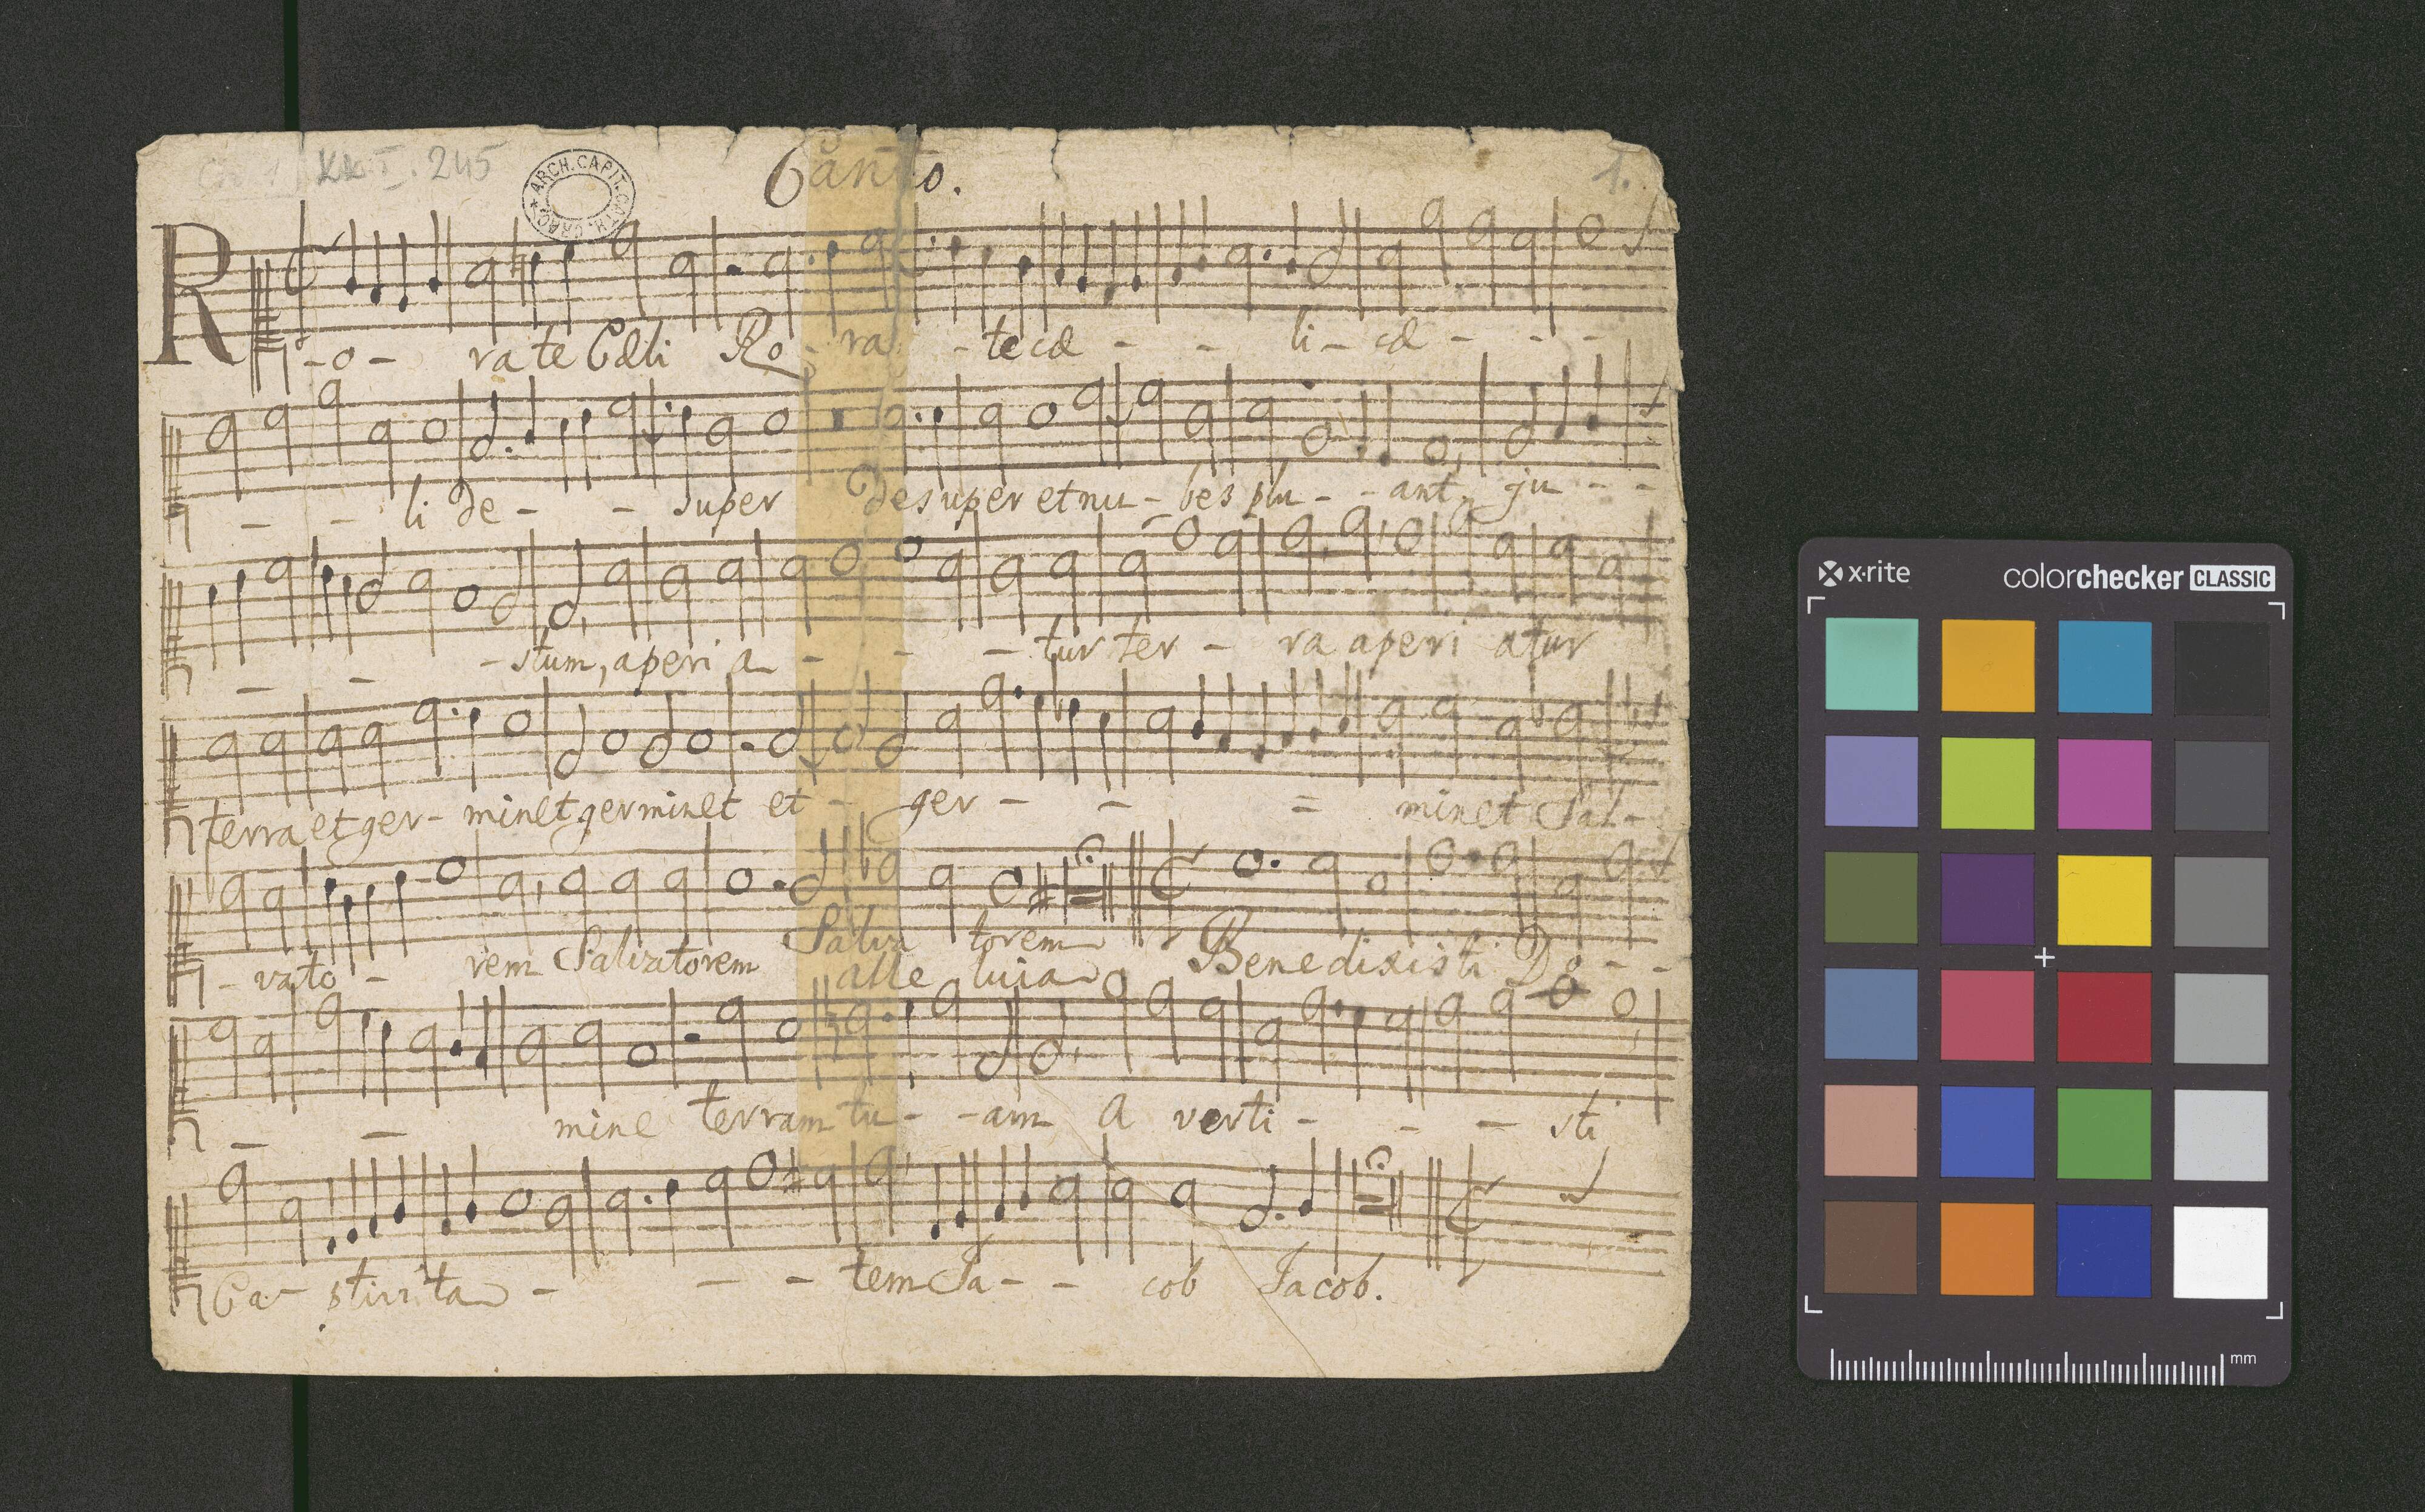 Kk. I. 245
ARCH. CAPIT.
Canto.
1.
R-o- rate Cæli Ro- ra - te cæ - - li - cæ - - -
- - li de - - super desuper et nu - bes plu - - ant ju - -
- - - stum, aperi a - - - tur ter - ra aperi atur
terra et ger - minet germinet et - ger - - = minet Sal -
- vato - rem Salvatorem Salva torem Benedixisti Do - -
alle luia
- - mine terram tu - - am A verti - - - sti
Ca - ptivita - - - tem Ja - - cob Jacob.
x·rite
colorchecker CLASSIC
mm